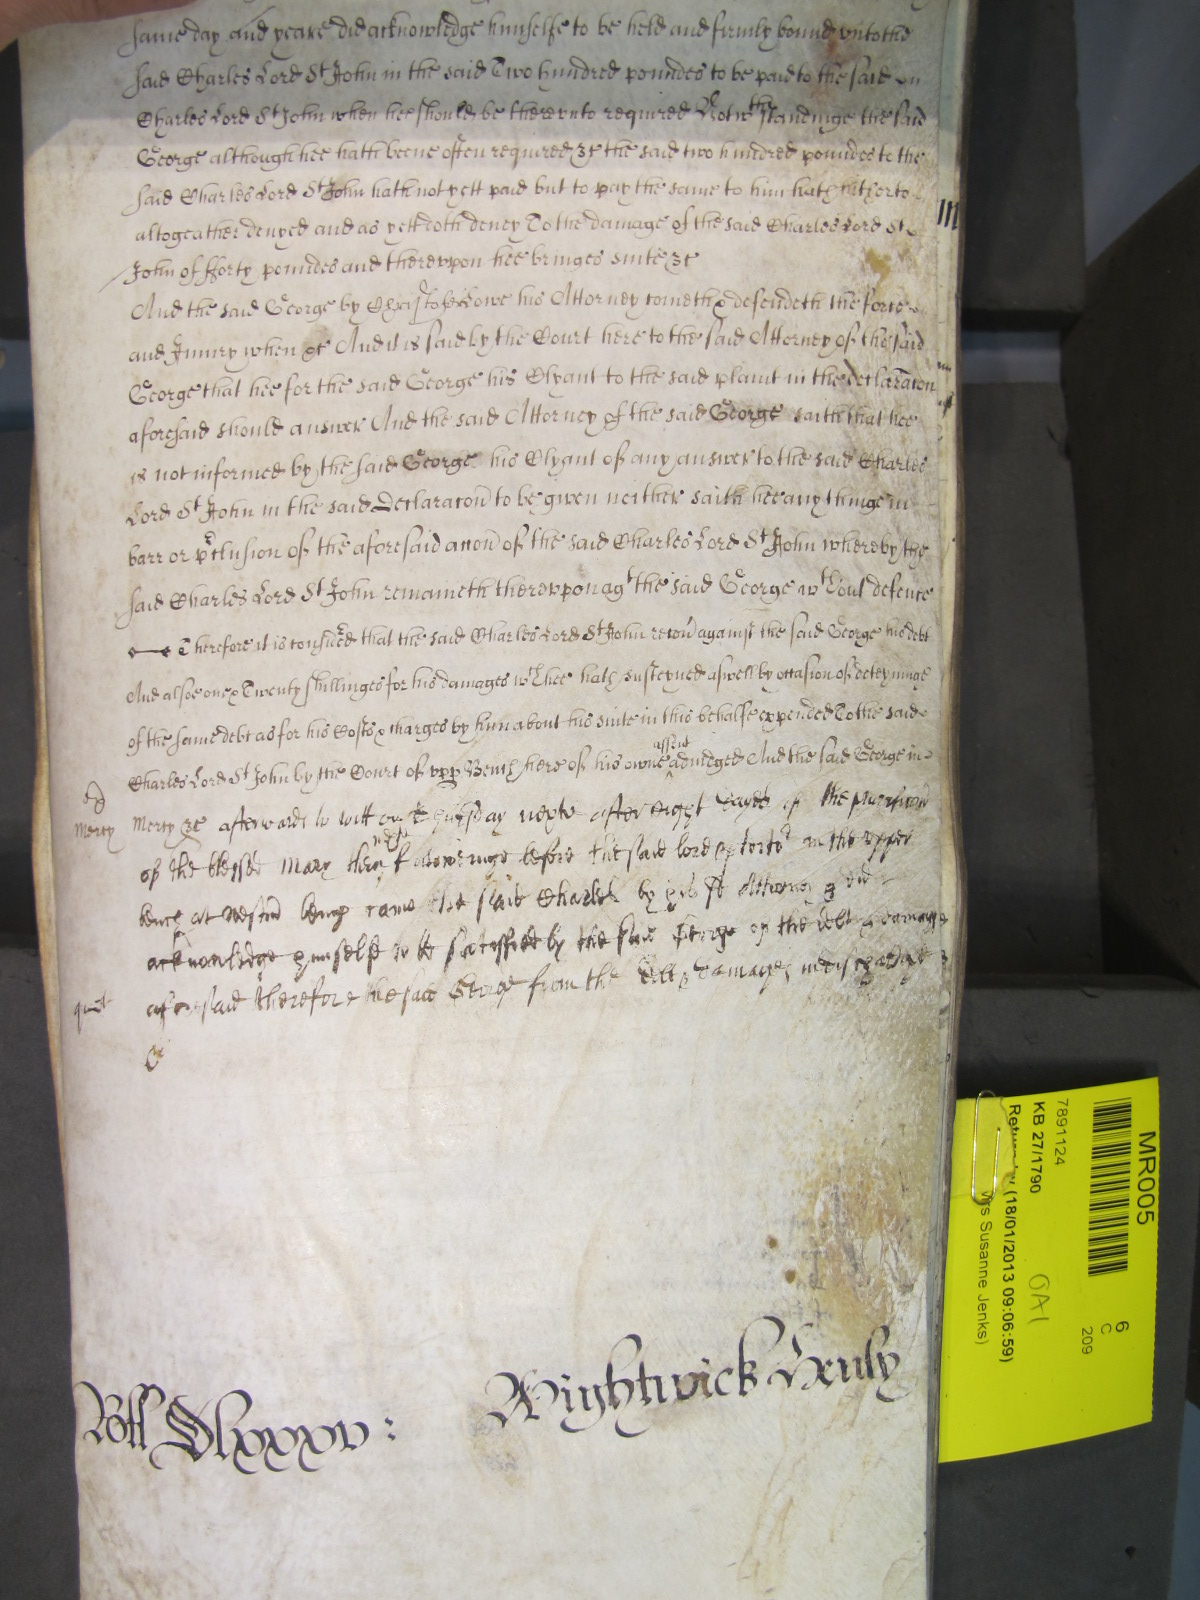 same day and yeare did acknowledge himselfe to be held and firmly bound unto the
said Charles Lord St John in the said Two hundred poundes to be paid to the said
Charles Lord St John when hee should be thereunto required Notwthstandinge the said
George although hee hath beene often required &c the said two hundred poundes to the
said Charles Lord St John hath not yett paid but to pay the same to him hath hitherto
altogeather denyed and as yett doth deney To the damage of the said Charles Lord St
John of fforty poundes and thereuppon hee bringes suite &c
And the said George by Lowe his Attorney cometh & defendeth the force
and Iniury when &c And it is said by the Court here to the said Attorney of the said
George that hee for the said George his Clyant to the said plaint in the declaracon
aforesaid should answer And the said Attorney of the said George saith that hee
is not informed by the said George his Clyant of any answer to the said Charles
Lord St John in the said Declaracon to be given neither saith hee any thinge in
barr or p'clusion of the aforesaid accon of the said Charles Lord St John whereby the
said Charles Lord St John remaineth thereuppon agt the said George wthout defence
Therefore it is considred that the said Charles Lord St John recou against the said George his debt
And alsoe one & Twenty shillinges for his damages wch hee hath susteyned aswell by occasion of deteyninge
of the same debt as for his Costs & charges by him about his suite in this behalfe expended To the said
Charles Lord St John by the Court of upp Bench here of his owne assent adiudged And the said George in
Mercy
Mercy &c afterwards to witt on Thursday next after eight dayes of the purificacon
of the blessed Mary then next followinge before the said lord protector in the upper
bench at Westm came the said Charles by his sd Attorney & did
acknowledge himselfe to be satisfied by the said George of the debt & damages
quit
aforesaid therefore the said George from the debt & damages
&c
Roll Dlxxxv:
Wightwick Henly
m
MR005
7891124
KB 27/1790
(18/01/2013 09:06:59)
Susanne Jenks)
OA1
6
C
209